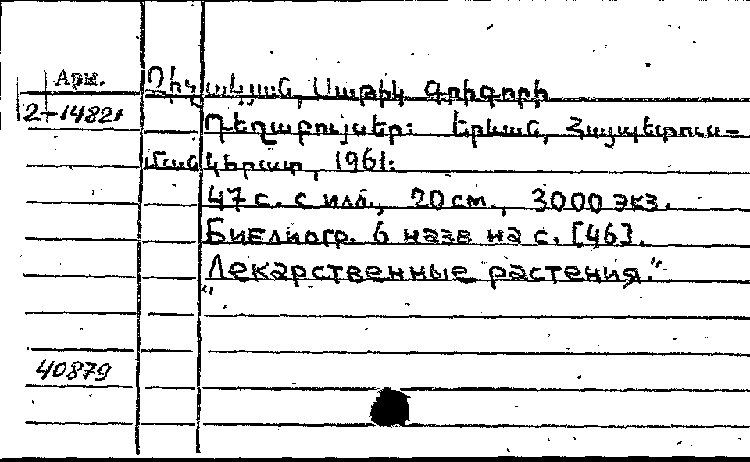 Арм.
2-14821
Սաթիկ Գրիգորի
Դեղաբույսեր: Երևան, Հայպետուս-
մանկհրատ, 1961:
47 с. с илл., 20 см., 3000 экз.
Библиогр. 6 назв на с. [46].
"Лекарственные растения."
40879